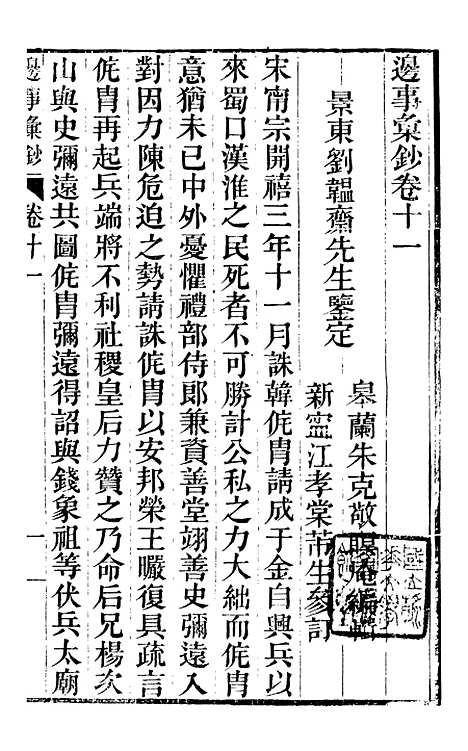 邊事彙鈔卷十一
景東劉韞齋先生鑒定
皋蘭朱克敬暝庵編輯
新寍江孝棠芾生參訂
宋甯宗開禧三年十一月誅韓侂胄請成于金自興兵以
來蜀口漢淮之民死者不可勝計公私之力大絀而侂胄
意猶未已中外憂懼禮部侍郎兼資善堂翊善史彌遠入
對因力陳危迫之勢請誅侂胄以安邦榮王曮復具疏言
侂胄再起兵端將不利社稷皇后力贊之乃命后兄楊次
山與史彌遠共圖侂胄彌遠得詔與錢象祖等伏兵太廟
邊事彙鈔
卷十一
一